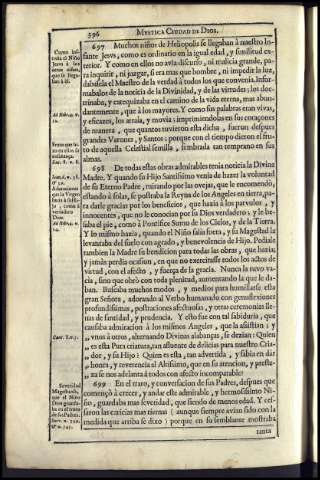 596 MYSTICA CIUDAD DE DIOS.
697 Muchos niños de Heliopolis se llegaban à nuestro In-
fante Jesvs, como es ordinario en la igual edad, y similitud ex-
terior. Y como en ellos no avia discurso, ni malicia grande, pa-
ra inquirir, ni juzgar, si era mas que hombre, ni impedir la luz,
dabasela el Maestro de la verdad à todos los que convenia. Infor-
mabalos de la noticia de la Divinidad, y de las virtudes; los doc-
trinaba, y catequizaba en el camino de la vida eterna, mas abun-
dantemente, que à los mayores. Y como sus palabras eran vivas,
y eficaces, los atraia, y movia; imprimiendolas en sus coraçones
de manera, que quantos tuvieron esta dicha, fueron despues
grandes Varones, y Santos; porque con el tiempo dieron el fru-
to de aquella Celestial semilla, sembrada tan temprano en sus
almas.
698 De todas estas obras admirables tenia noticia la Divina
Madre. Y quando su Hijo Santissimo venia de hazer la voluntad
de su Eterno Padre, mirando por las ovejas, que le encomendó,
estando à solas, se postraba la Reyna de los Angeles en tierra, pa-
ra darle gracias por los beneficios, que hazia à los parvulos, y
innocentes, que no le conocian por su Dios verdadero; y le besa-
ba el pie, como à Pontifice Sumo de los Cielos, y de la Tierra.
Y lo mismo hazia, quando el Niño salia fuera, y su Magestad la
levantaba del suelo con agrado, y benevolencia de Hijo. Pediale
tambien la Madre su bendicion para todas las obras, que hazia;
y jamàs perdia ocasion, en que no exercitasse todos los actos de
virtud, con el afecto, y fuerça de la gracia. Nunca la tuvo va-
cia, sino que obrò con toda plenitud, aumentando la que le da-
ban. Buscaba muchos modos, y medios para humillarse esta
gran Señora, adorando al Verbo humanado con genuflexiones
profundissimas, postraciones afectuosas, y otras ceremonias lle-
nas de santidad, y prudencia. Y esto fue con tal sabiduria, que
causaba admiracion à los mismos Angeles, que la assistian; y
vnos à otros, alternando Divinas alabanças, se dezian: Quien
„ es esta Pura criatura, tan afluente de delicias para nuestro Cria-
„ dor, y su Hijo? Quien es esta, tan advertida, y sabia en dàr
„ honra, y reverencia al Altissimo, que en su atencion, y preste-
„ za se nos adelanta à todos con afecto incomparable?
699 En el trato, y conversacion de sus Padres, despues que
començò à crecer, y andar este admirable, y hermosissimo Ni-
ño, guardaba mas severidad, que siendo de menos edad. Y ces-
saron las caricias mas tiernas (aunque siempre avian sido con la
medida que arriba se dixo) porque en su semblante mostraba
tanta